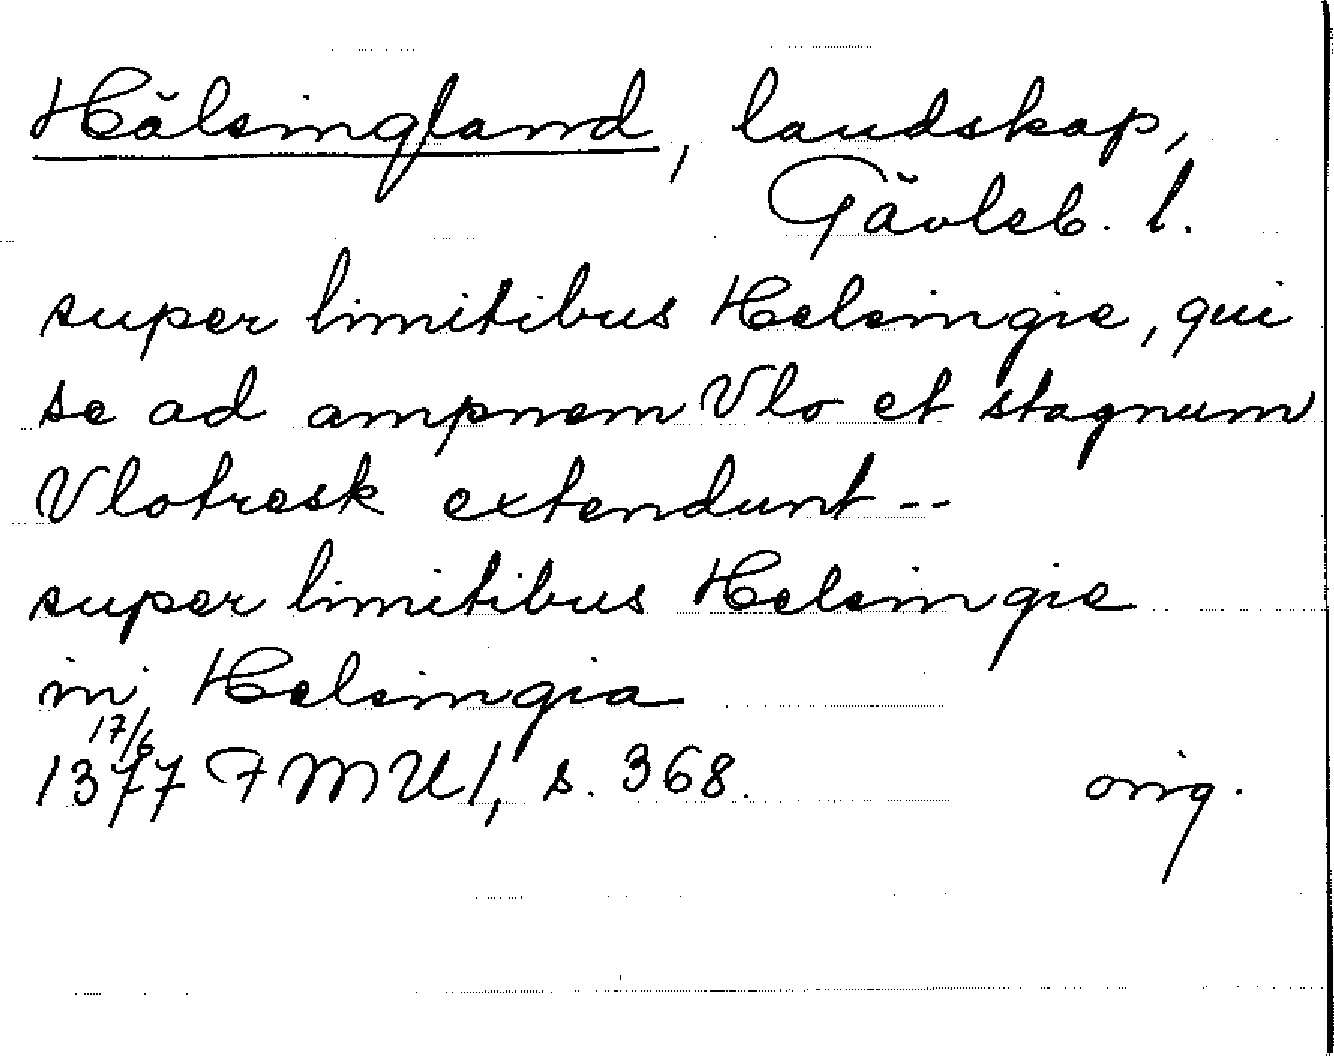 Hälsingland, landskap,
Gävleb. l.
super limitibus Helsingie, qui
se ad ampnem Vlo et stagnum
Vlotresk extendunt --
super limitibus Helsingie
in Helsingia
17/6
1377 FMU 1, s. 368. orig.